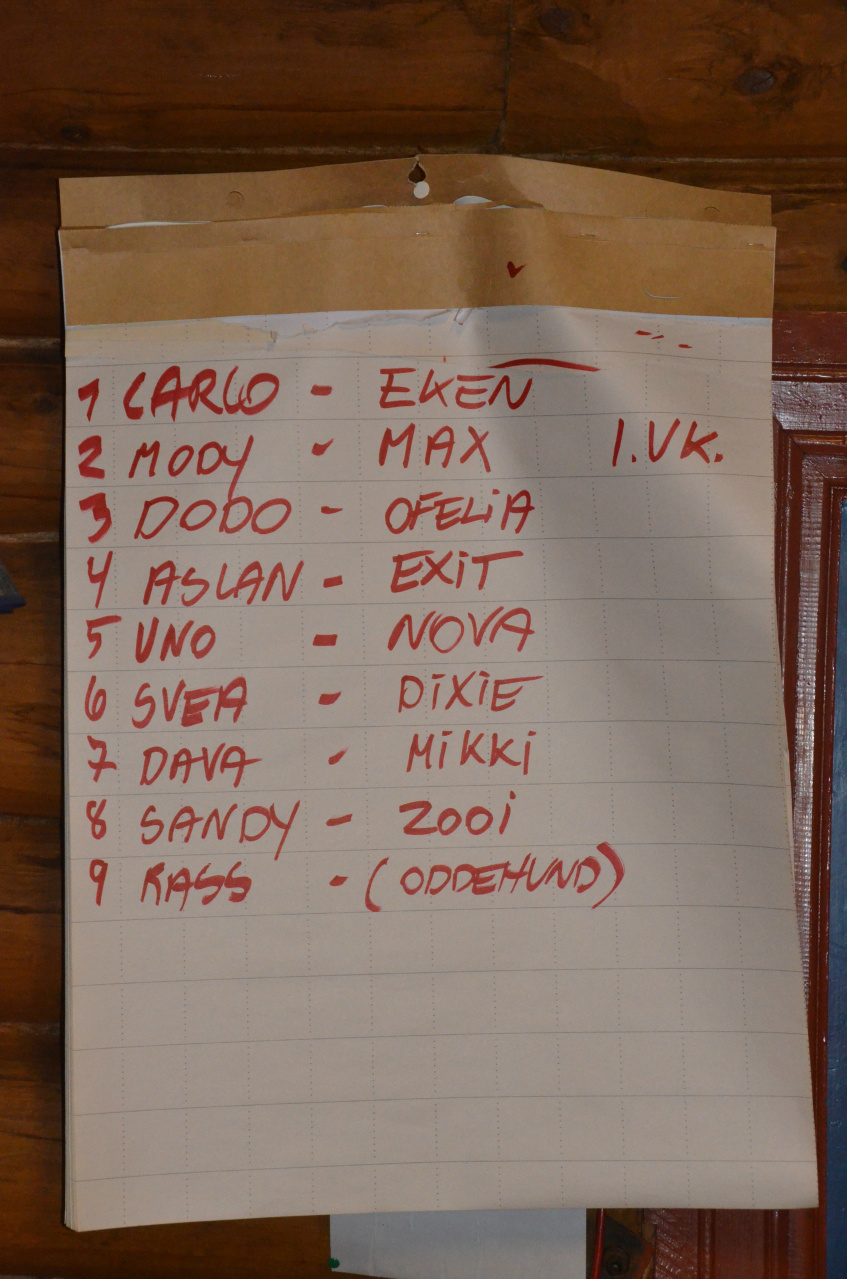 1 CARLO - EKEN
2 MODY - MAX 1.VK.
3 DODO - OFELiA
4 ASLAN - EXiT
5 UNO - NOVA
6 SVEA - DiXiE
7 DAVA - MiKKi
8 SANDY - ZOOi
9 RASS - (ODDEHUND)